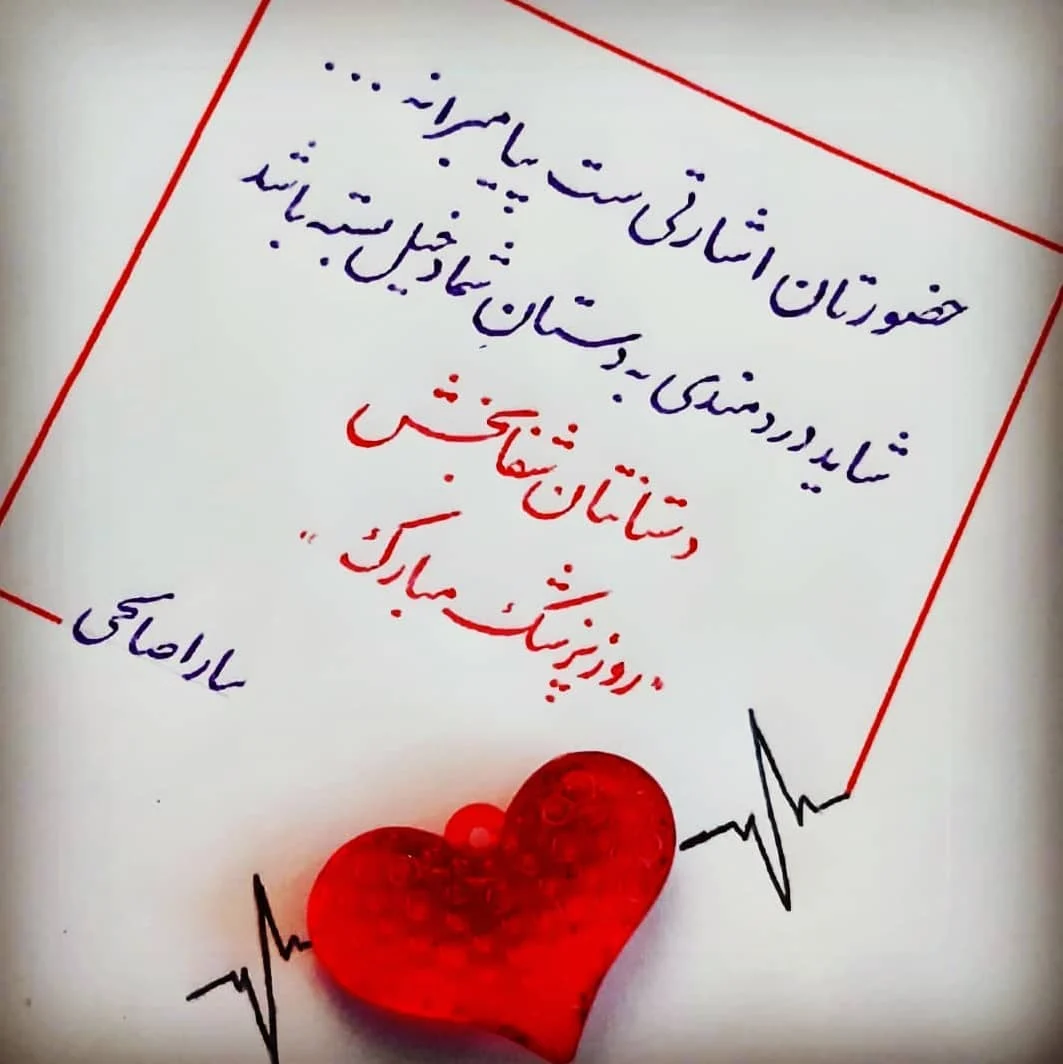 حضورتان اشارتی ست پیامبرانه ...
شاید دردمندی به دستانِ شما دخیل بسته باشد
دستانتان شفابخش
"روز پزشک مبارک"
سارا صالحی